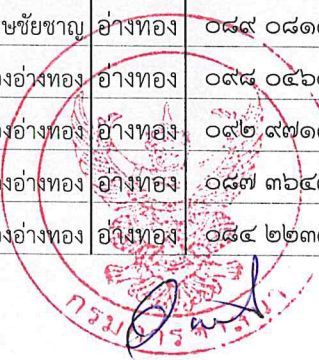 ษชัยชาญ อ่างทอง ๐๘๙ ๐๘๑
งอ่างทอง อ่างทอง ๐๙๘ ๐๔๖
งอ่างทอง อ่างทอง ๐๙๒ ๙๗๑
งอ่างทอง อ่างทอง ๐๘๗ ๓๖๔
งอ่างทอง อ่างทอง ๐๘๔ ๒๒๓
กรม